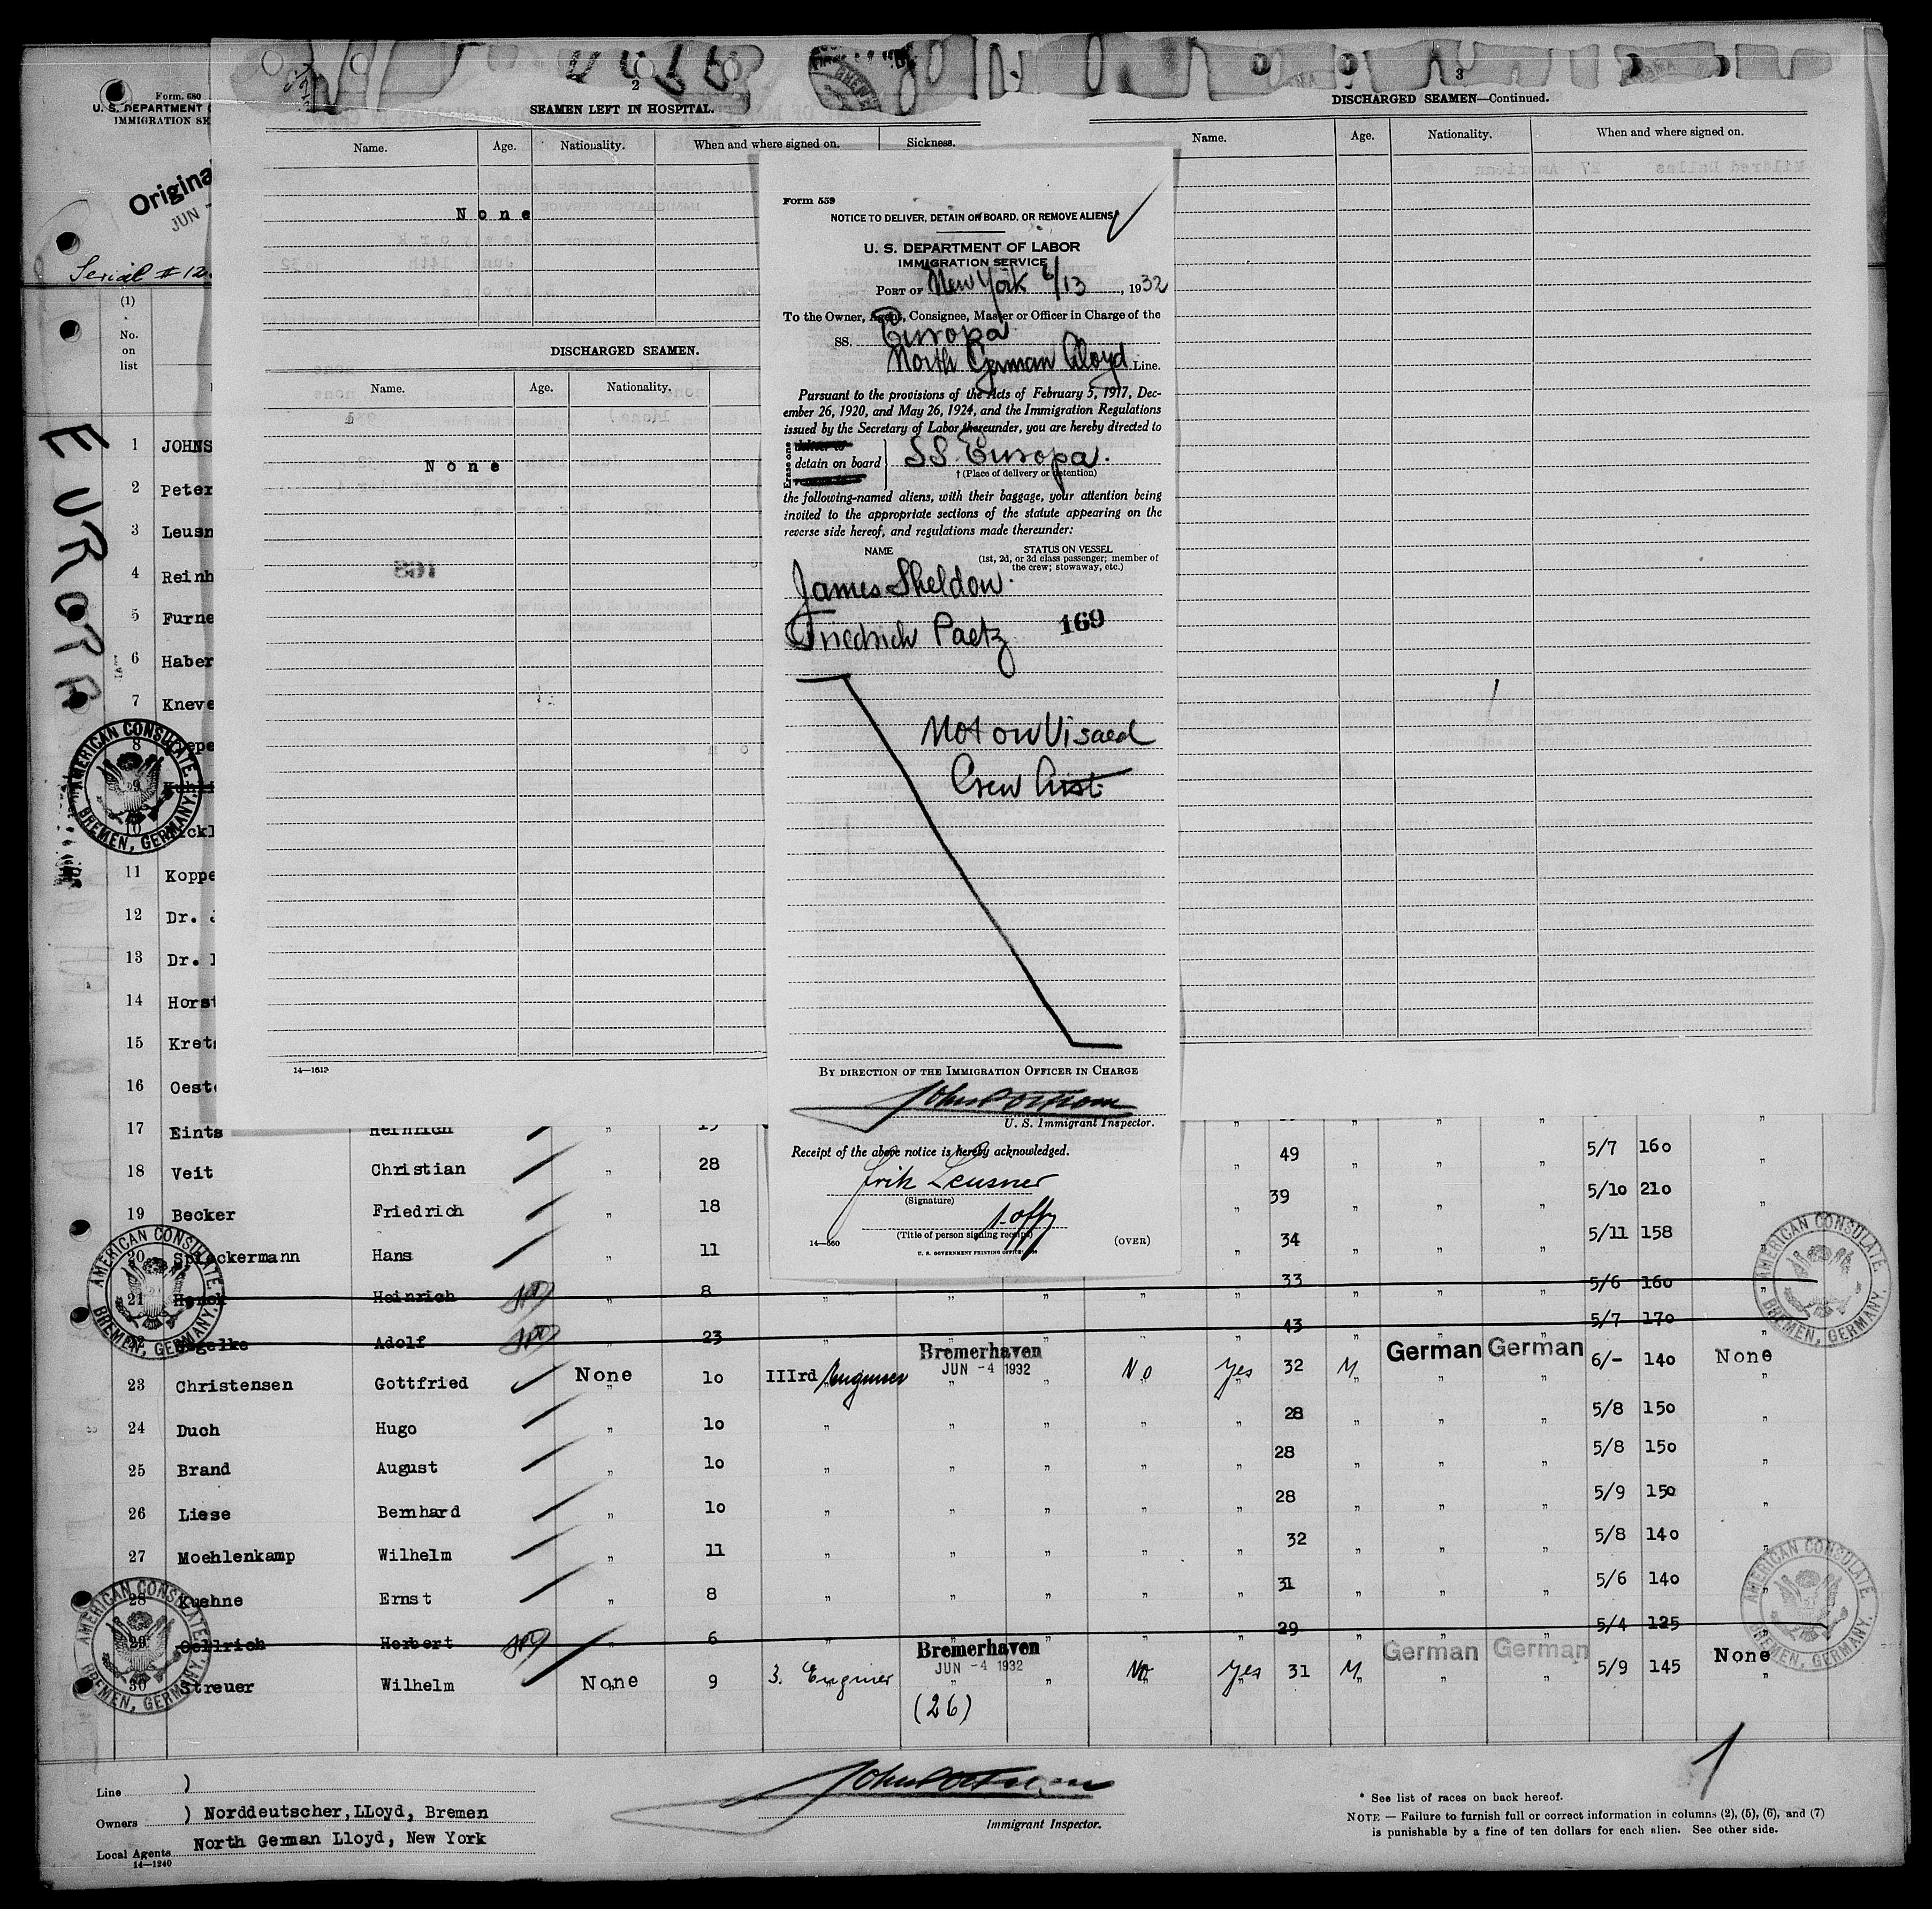 Form. 680
U. S. DEPARTMENT
IMMIGRATION SE
Origina
JUN
Serial # 12
(1)
No.
on
list
EUROPA
1 JOHNS
2 Peter
3 Leusn
4 Reinh
5 Furne
6 Haber
7 Kneve
8 epe
9
10 ckl
11 Koppe
12 Dr.
13 Dr.
14 Horst
15 Krets
16 Oeste
2
SEAMEN LEFT IN HOSPITAL.
Name. Age. Nationality. When and where signed on. Sickness.
None
DISCHARGED SEAMEN.
Name. Age. Nationality.
None
14—1613
3
DISCHARGED SEAMEN—Continued.
Name. Age. Nationality. When and where signed on.
Form 559
NOTICE TO DELIVER, DETAIN ON BOARD, OR REMOVE ALIENS
U. S. DEPARTMENT OF LABOR
IMMIGRATION SERVICE
PORT OF New York 6/13, 1932
To the Owner, Agent, Consignee, Master or Officer in Charge of the
SS. Europa
North German Lloyd Line.
Pursuant to the provisions of the Acts of February 5, 1917, Dec-
ember 26, 1920, and May 26, 1924, and the Immigration Regulations
issued by the Secretary of Labor thereunder, you are hereby directed to
Erase one
detain on board } SS. Europa.
† (Place of delivery or detention)
the following-named aliens, with their baggage, your attention being
invited to the appropriate sections of the statute appearing on the
reverse side hereof, and regulations made thereunder:
NAME STATUS ON VESSEL
(1st, 2d, or 3d class passenger; member of
the crew; stowaway, etc.)
James Sheldon.
Friedrich Paetz 169
Not on Visaed
Crew List
BY DIRECTION OF THE IMMIGRATION OFFICER IN CHARGE
U. S. Immigrant Inspector.
Receipt of the above notice is hereby acknowledged.
Erik Leusner
(Signature)
1. Offz
(Title of person signing receipt)
14—560 U. S. GOVERNMENT PRINTING OFFICE (OVER)
17 Eints Heinrich " 19 " " " " "
18 Veit Christian " 28 " 49 " " " 5/7 160 "
19 Becker Friedrich " 18 " 39 " " " 5/10 210 "
20 Spieckermann Hans " 11 " 34 " " " 5/11 158 "
21 Henck Heinrich " 8 " " " " " 33 " " " 5/6 160 "
22 Segelke Adolf " 23 " " " " " 43 " " " 5/7 170 "
23 Christensen Gottfried None 10 IIIrd Engineer Bremerhaven JUN -4 1932 " No Yes 32 M German German 6/- 140 None
24 Duch Hugo " 10 " " " " " 28 " " " 5/8 150 "
25 Brand August " 10 " " " " " 28 " " " 5/8 150 "
26 Liese Bernhard " 10 " " " " " 28 " " " 5/9 150 "
27 Moehlenkamp Wilhelm " 11 " " " " " 32 " " " 5/8 140 "
28 Kuehne Ernst " 8 " " " " " 31 " " " 5/6 140 "
29 Oellrich Herbert " 6 " " " " " 29 " " " 5/4 125 "
30 Streuer Wilhelm None 9 3. Enginer Bremerhaven JUN -4 1932 " No Yes 31 M German German 5/9 145 None
(26)
AMERICAN CONSULATE
BREMEN, GERMANY.
AMERICAN CONSULATE
BREMEN, GERMANY.
AMERICAN CONSULATE
BREMEN, GERMANY.
AMERICAN CONSULATE
BREMEN, GERMANY.
AMERICAN CONSULATE
BREMEN, GERMANY.
Line )
Owners ) Norddeutscher, LLoyd, Bremen
Local Agents North German Lloyd, New York
14—1240
Immigrant Inspector.
1
* See list of races on back hereof.
NOTE — Failure to furnish full or correct information in columns (2), (5), (6), and (7)
is punishable by a fine of ten dollars for each alien. See other side.